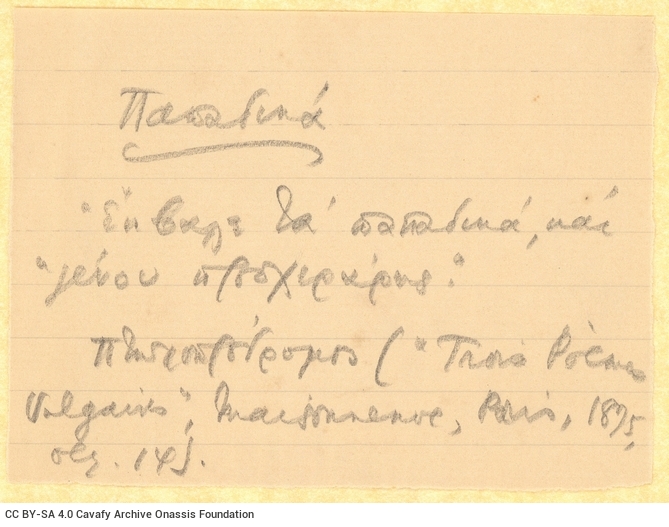 Παπαδικά
"Έκβαλε τα παπαδικά, και
"γένου προσχεράρης".
Πτωχοπρόδρομος ("Trois Poèmes
Vulgaires", Maisonneuve, Paris, 1875,
σελ.
CC BY-SA 4.0 Cavafy Archive Onassis Foundation